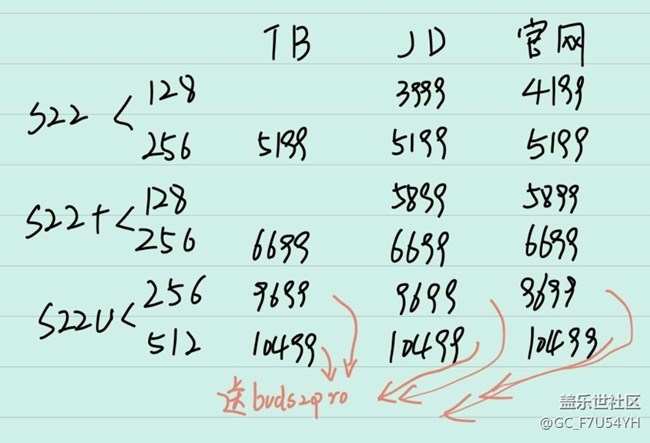 TB JD 官网
S22 < 128 3999 4199
256 5199 5199 5199
S22+ < 128 5899 5899
256 6699 6699 6699
S22U < 256 9699 9699 9699
512 10499 10499 10499
送buds2pro
盖乐世社区
@GC_F7U54YH